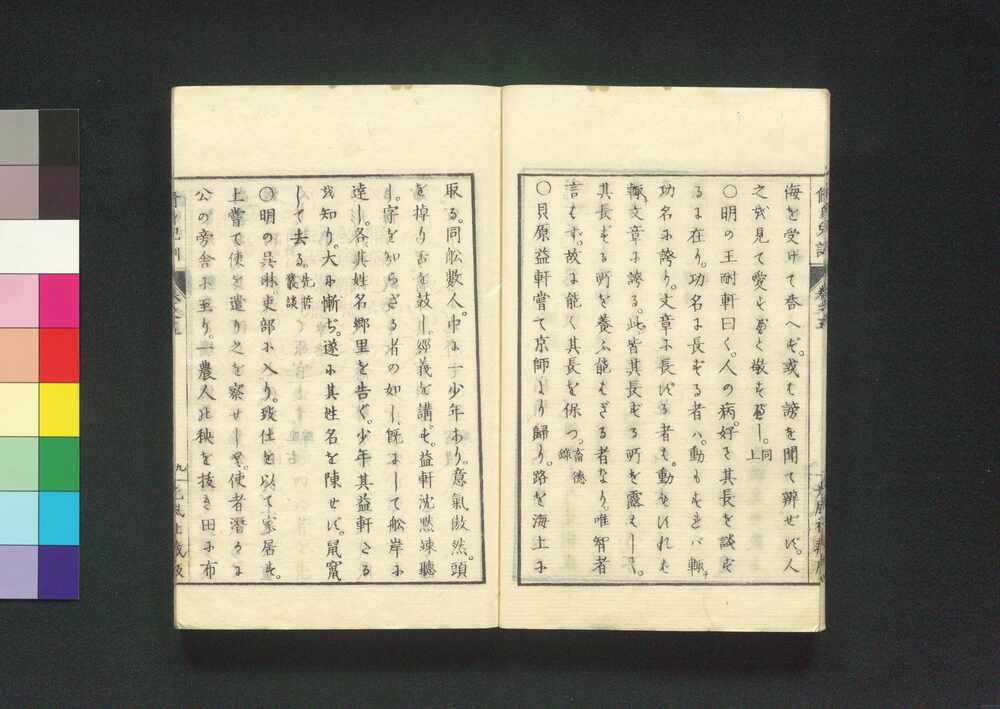 侮を受けて答へず。或は謗を聞て辨せず。人
之を見て愛すべく敬すべし。同上
〇明の王耐軒曰く。人の病。好て其長を談ず
るに在り。功名に長ずる者ハ。動もすれバ輙
功名に誇り。文章に長ずる者も。動もすれば
輙文章に誇る。此皆其長ずる所を露はし。
其長ずる所を養ふ能はざる者なり。唯智者
言はず。故に能く其長を保つ。畜德錄
〇貝原益軒嘗て京師より歸り。路を海上に
取る。同舩數人。中に一少年あり。意氣傲然。頭
を掉り舌を鼓し。經義を講ず。益軒沈默竦聽
し。字を知らざる者の如し。既にして舩岸に
達し。各其姓名鄉里を告ぐ。少年其益軒たる
を知り。大に慚ぢ。遂に其姓名を陳せず。鼠竄
して去る。先哲叢談
〇明の吳琳吏部に入り。致仕を以て家居す。
上嘗て使を遣り之を察せしむ。使者潛るに
公の旁舍に至り。一農人の秧を拔き田に布